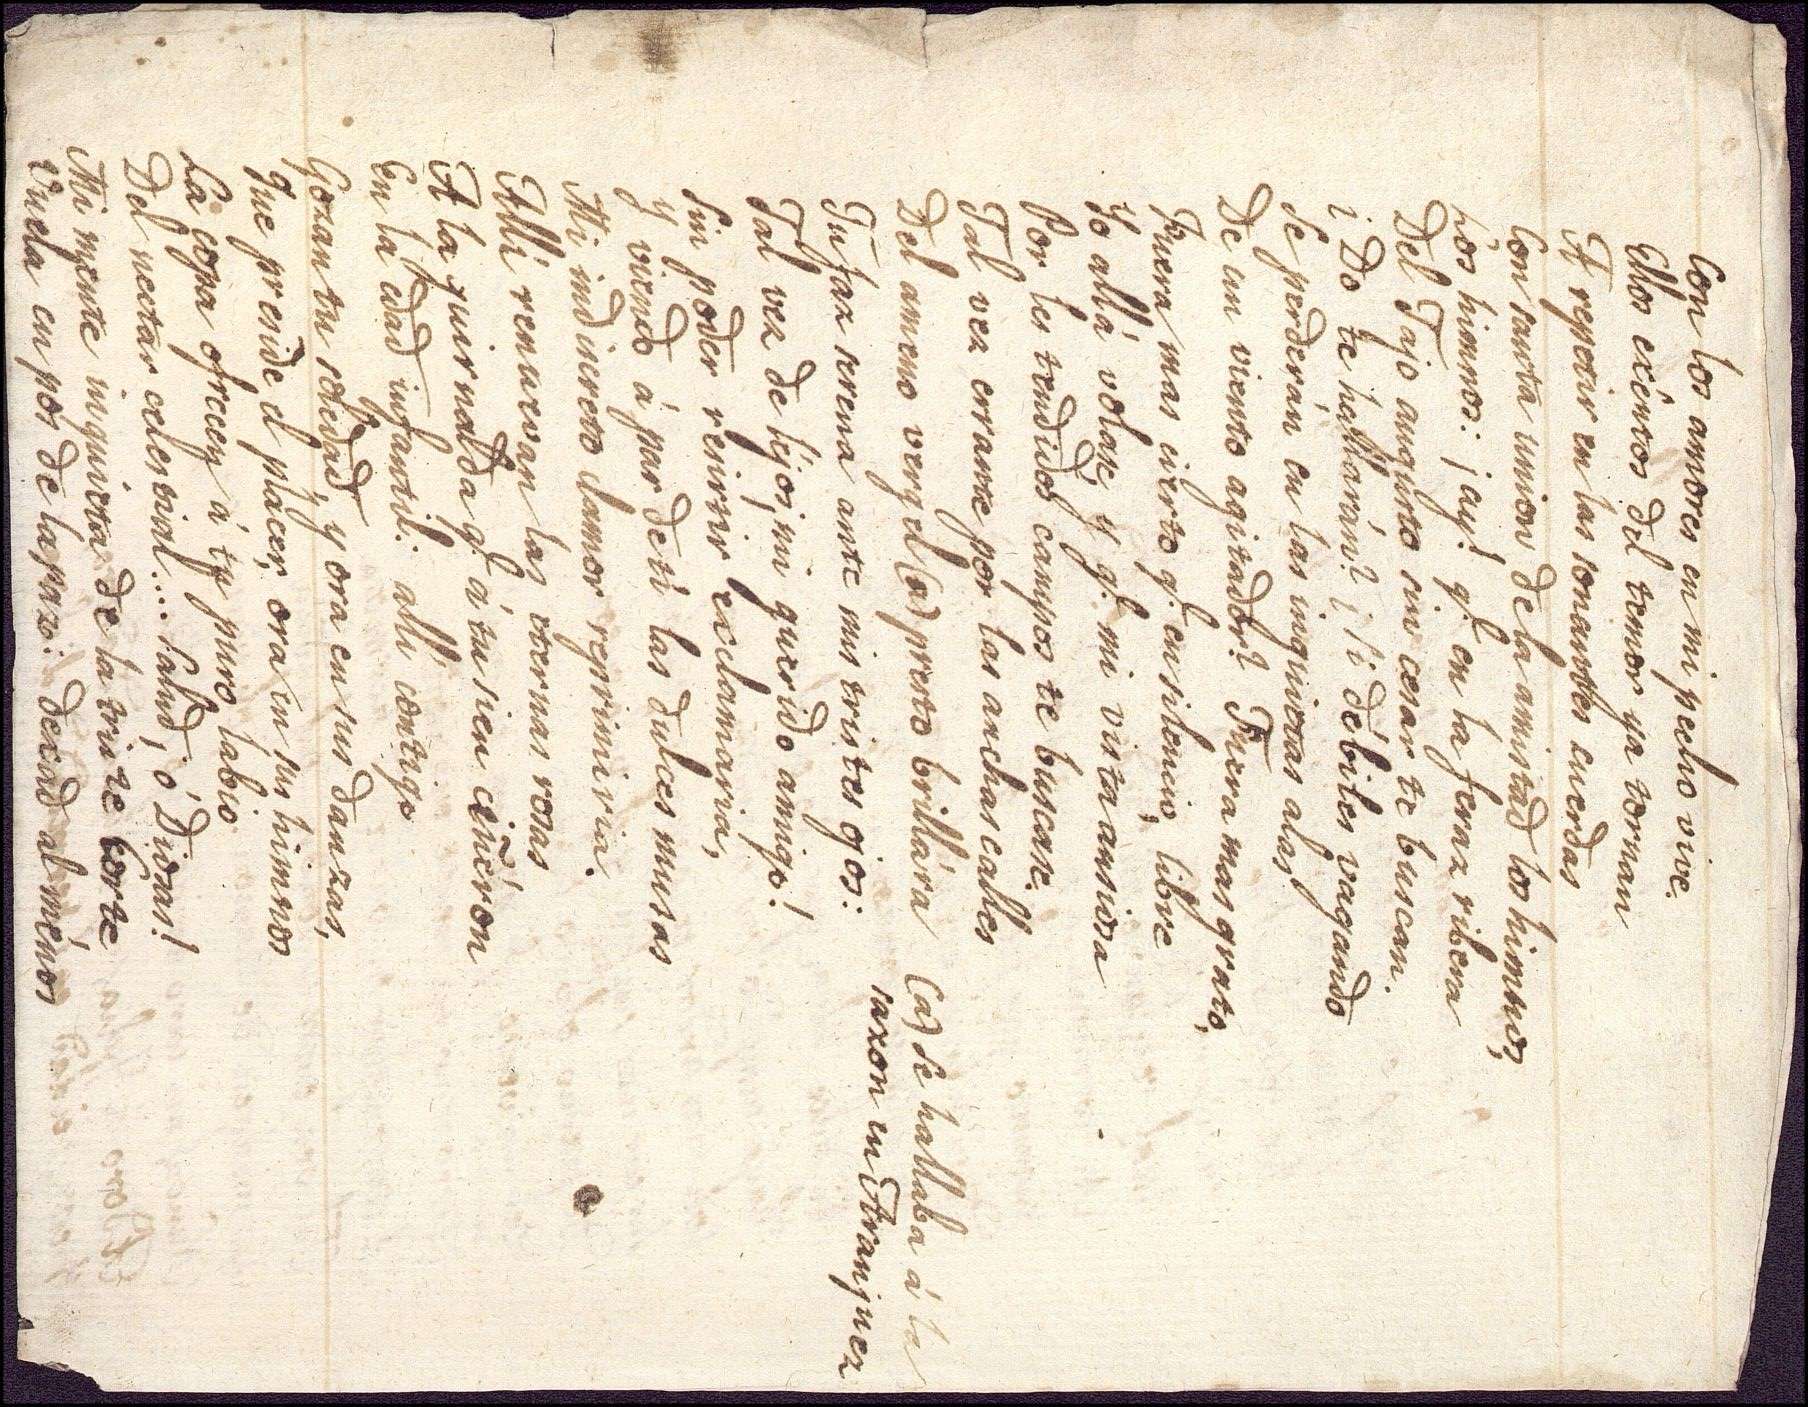 Con los amores en mi pecho vive.
Ellos exêntos del temor ya tornan
A repetir en las sonantes cuerdas
Con santa union de la amistad los himnos,
Los himnos: ¡ay! q.e en la feraz ribera
Del Tajo augusto sin cesar te buscan.
¿Do te hallarán? ¿Si débiles vagando
Se perderán en las inquietas alas
De un viento agitador? Fuera mas grato,
Fuera mas cierto q.e en silencio, libre
Yo allá volase, y q.e mi vista ansiosa
Por los tendidos campos te buscase.
Tal vez errante por las anchas calles
Del ameno vergel (a) presto brillára
Tu faz serena ante mis tristes ojos:
Tal vez de léjos, mi querido amigo!
Sin poder resistir exclamaria,
y viendo á par de ti las dulces musas
Mi indiscreto clamor reprimiria.
Allí renuevan las eternas rosas
A la guirnalda q.e á tu sien ciñéron
En la edad infantil: allí contigo
Gozan tu soledad, y ora en sus danzas,
Que preside el placer, ora en sus himnos
La copa ofrecen á tu puro labio
Del nectar celestial.... Salud, ó Divas!
Mi mente inquieta de la triste Corte
Vuela en pos de la paz: dexad al ménos
(a) Se hallaba á la
saxon en Aranjuez